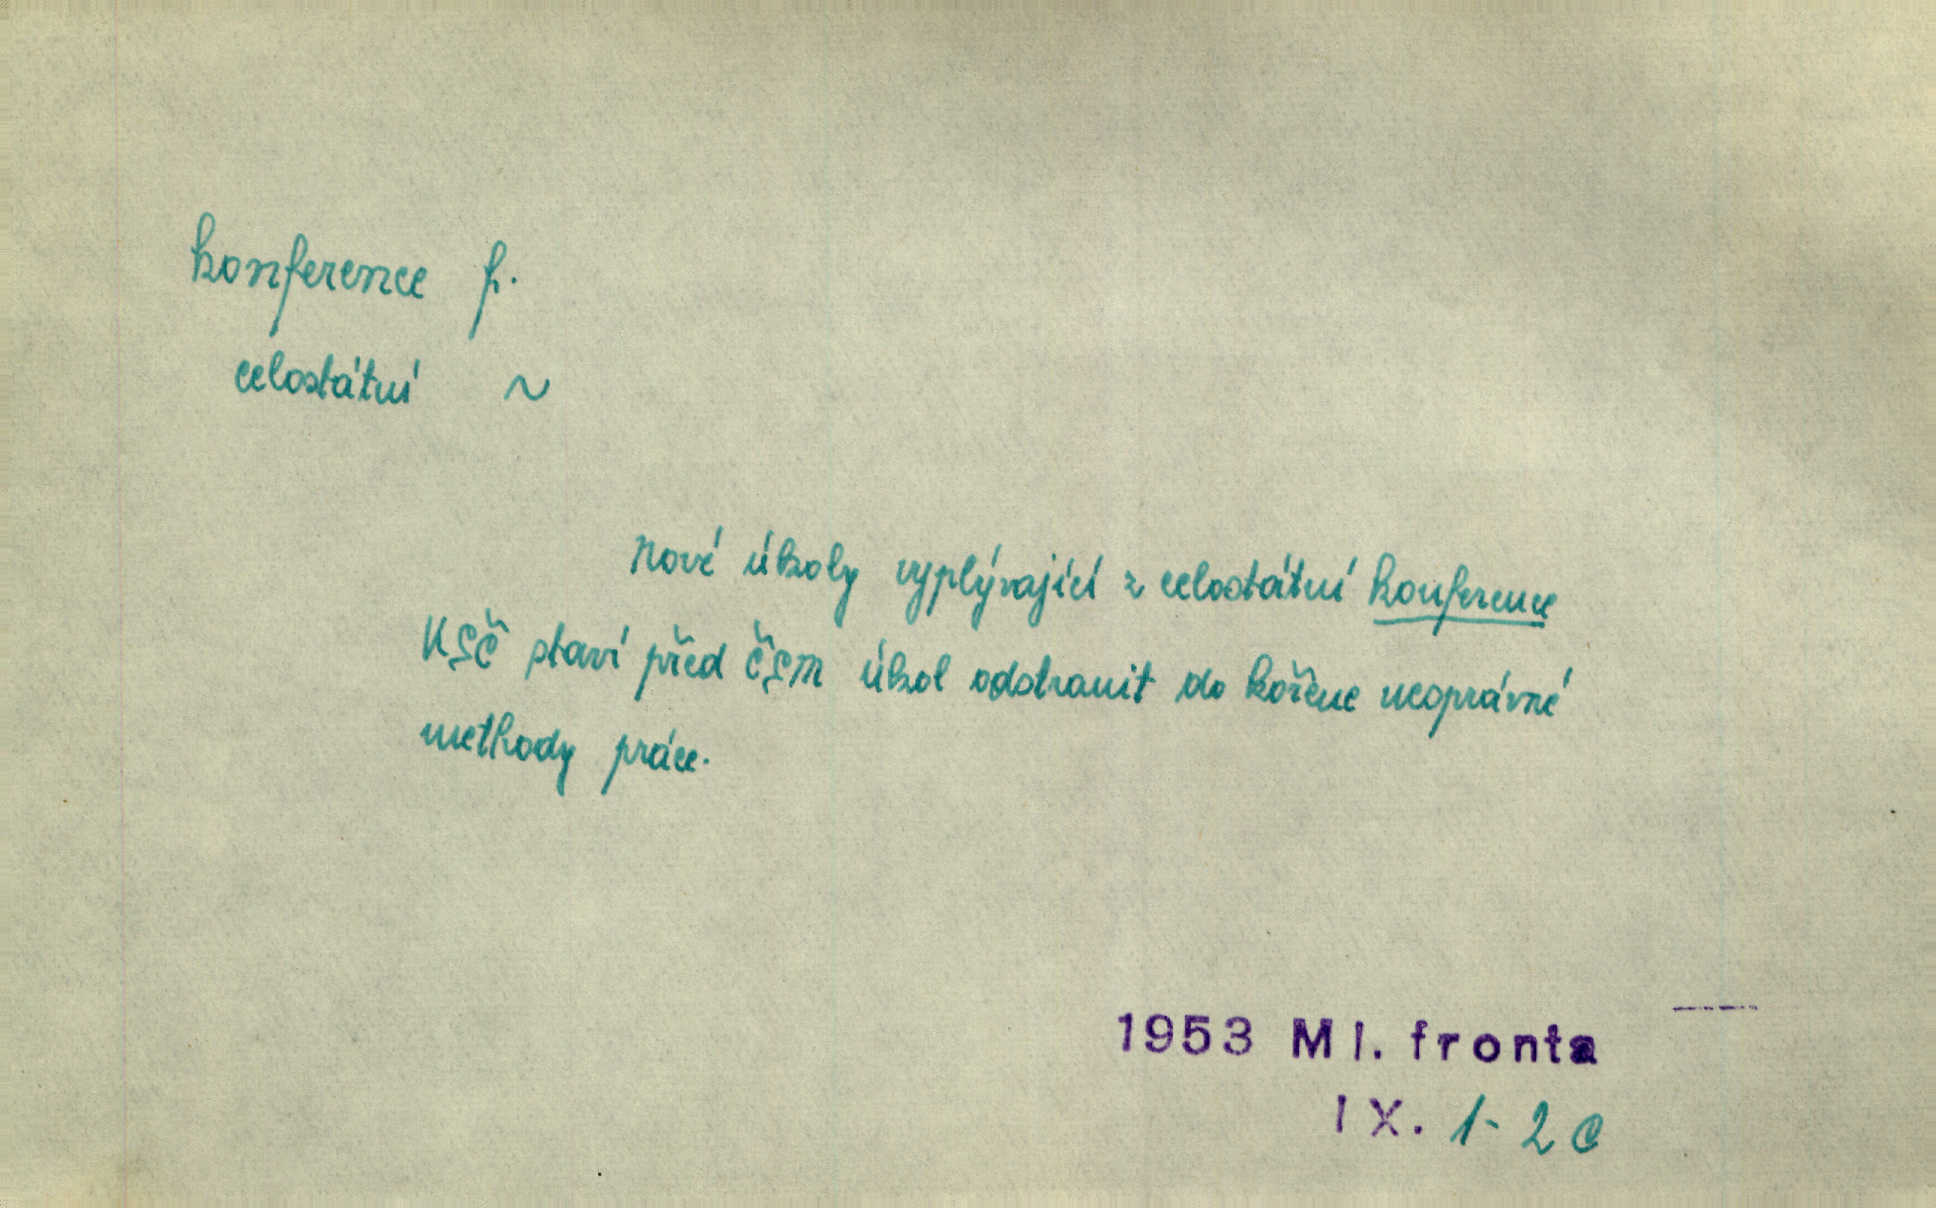 konference f.
celostátní ~
Nové úkoly vyplývající z celostátní konference
KSČ staví před ČSM úkol odstranit do kořene neoprávné
methody práce.
1953 Ml. fronta
IX. 1- 2 c